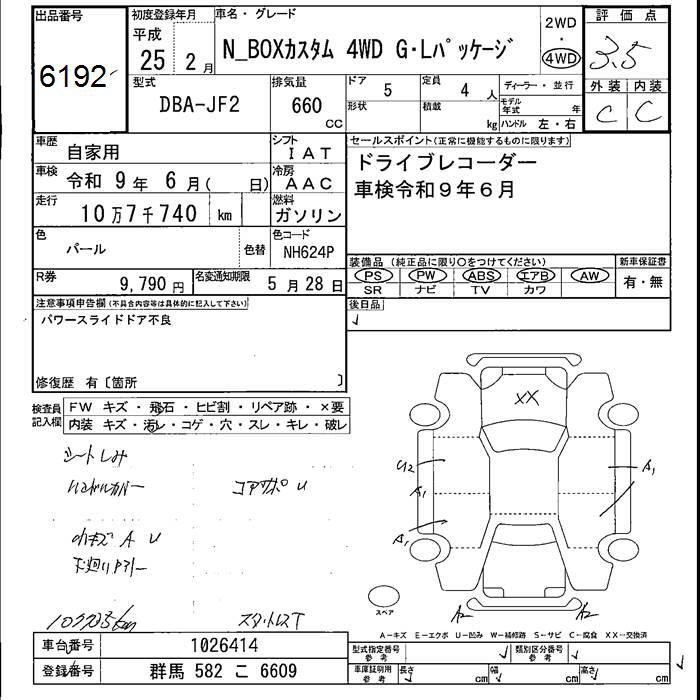 出品番号
6192
初度登録年月
平成
25 2月
車名・グレード
N_BOXカスタム 4WD G・Lパッケージ
2WD
・
4WD
評価点
3.5
外装 内装
C C
型式
DBA-JF2
排気量
660
cc
ドア
5
定員
4 人
形状
積載
kg
ディーラー・並行
モデル年式 年
ハンドル 左・右
車歴
自家用
シフト
IAT
車検
令和 9年 6月( 日)
冷房
AAC
走行
10万7千740 km
燃料
ガソリン
色
パール
色替
色コード
NH624P
R券
9,790円
名変通知期限
5月28日
セールスポイント(正常に機能するものに限ります)
ドライブレコーダー
車検令和9年6月
装備品(純正品に限り○をつけてください)
PS PW ABS エアB AW
SR ナビ TV カワ
新車保証書
有・無
後日品
注意事項申告欄(不具合内容等は具体的に記入して下さい)
パワースライドドア不良
修復歴 有〔箇所 〕
検査員記入欄
FW キズ・飛石・ヒビ割・リペア跡・×要
内装 キズ・汚レ・コゲ・穴・スレ・キレ・破レ
シートしみ
コアサポ U
A U
スタットレスT
XX
U2
A1
A1
A1
A2
A2
スペア
A-キズ E-エクボ U-凹み W-補修跡 S-サビ C-腐食 XX-交換済
車台番号
1026414
登録番号
群馬 582 こ 6609
型式指定番号
参考
類別区分番号
参考
車庫証明用
参考
長さ cm 幅 cm 高さ cm